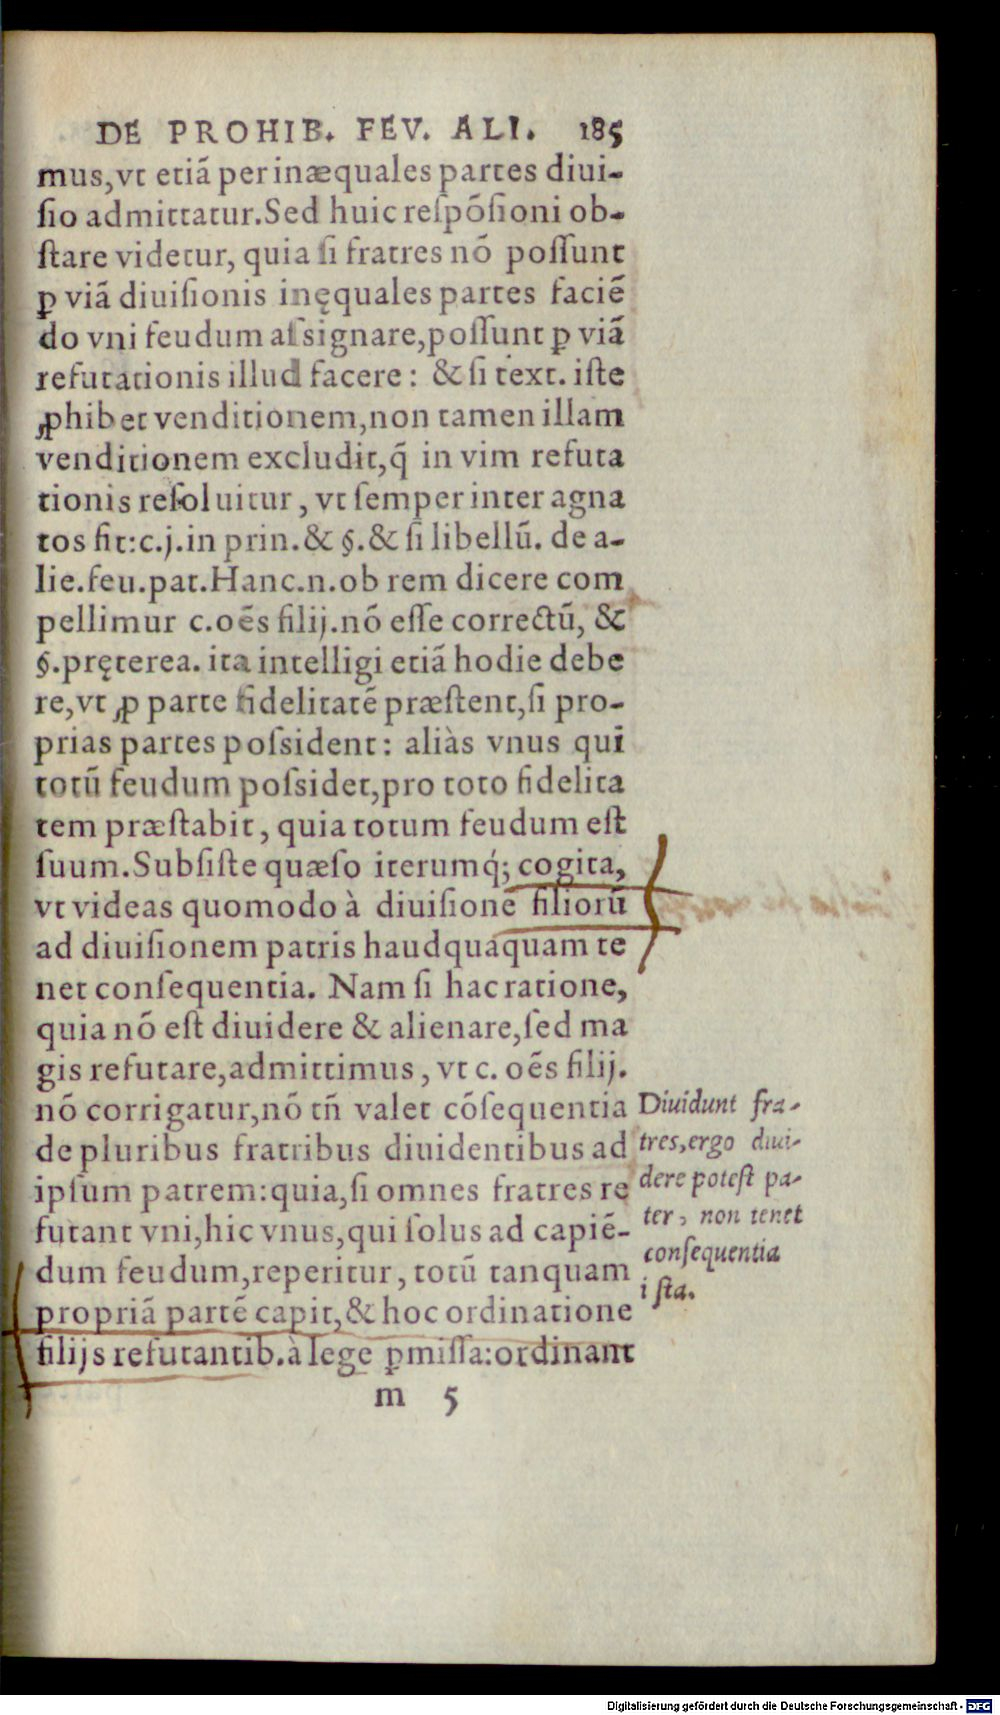 DE PROHIB. FEV. ALI. 185
mus,vt etiã per inæquales partes diui-
ſio admittatur.Sed huic reſpõſioni ob-
ſtare videtur, quia ſi fratres nõ poſſunt
ꝑ viã diuiſionis inęquales partes faciẽ
do vni feudum aſsignare,poſſunt ꝑ viã
refutationis illud facere: & ſi text. iſte
ꝓhibet venditionem,non tamen illam
venditionem excludit,q̃ in vim refuta
tionis reſoluitur, vt ſemper inter agna
tos fit:c.j.in prin.& §.& ſi libellũ. de a-
lie.feu.pat.Hanc.n.ob rem dicere com
pellimur c.oẽs filij.nõ eſſe correctũ, &
§.pręterea. ita intelligi etiã hodie debe
re,vt ꝓ parte fidelitatẽ præſtent,ſi pro-
prias partes poſsident: aliàs vnus qui
totũ feudum poſsidet,pro toto fidelita
tem præſtabit, quia totum feudum eſt
ſuum.Subſiſte quæſo iterumq́; cogita,
vt videas quomodo à diuiſione filiorũ
ad diuiſionem patris haudquaquam te
net conſequentia. Nam ſi hac ratione,
quia nõ eſt diuidere & alienare,ſed ma
gis refutare,admittimus, vt c. oẽs filij.
nõ corrigatur,nõ tñ valet cõſequentia
de pluribus fratribus diuidentibus ad
ipſum patrem:quia,ſi omnes fratres re
futant vni,hic vnus,qui ſolus ad capiẽ-
dum feudum,reperitur, totũ tanquam
propriã partẽ capit,& hoc ordinatione
filijs refutantib.à lege ꝑmiſſa:ordinant
m 5
Diuidunt fra-
tres,ergo diui-
dere poteſt pa-
ter, non tenet
conſequentia
iſta.
Digitalisierung gefördert durch die Deutsche Forschungsgemeinschaft - DFG